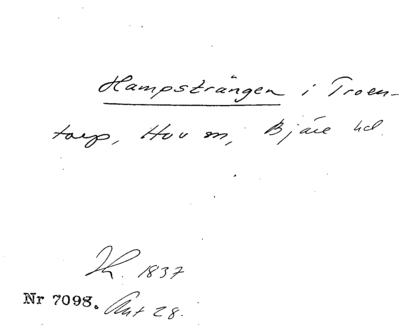 Hampsträngen i Troen-
torp, Hov sn, Bjäre hd.
Jh. 1837
Nr 7098. Ant 28.